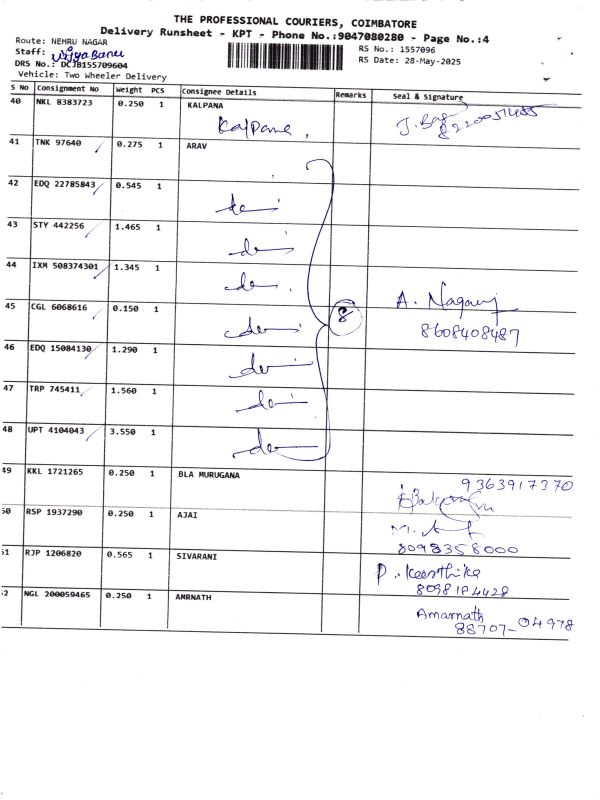 THE PROFESSIONAL COURIERS, COIMBATORE
Delivery Runsheet - KPT - Phone No.:9047080280 - Page No.:4
Route: NEHRU NAGAR
RS No.: 1557096
Staff: Vijya Banu
RS Date: 28-May-2025
DRS No.: DCJB155709604
Vehicle: Two Wheeler Delivery
S No Consignment No Weight PCS Consignee Details Remarks Seal & Signature
40 NKL 8383723 0.250 1 KALPANA
Kalpana, 
41 TNK 97640 0.275 1 ARAV
42 EDQ 22785843 0.545 1
43 STY 442256 1.465 1
44 IXM 508374301 1.345 1
45 CGL 6068616 0.150 1 8 A. Nagaraj
8608408487
46 EDQ 15084130 1.290 1
47 TRP 745411 1.560 1
48 UPT 4104043 3.550 1
49 KKL 1721265 0.250 1 BLA MURUGANA 9363917370
50 RSP 1937290 0.250 1 AJAI
8098358000
51 RJP 1206820 0.565 1 SIVARANI P. Keerthika
8098184428
52 NGL 200059465 0.250 1 AMRNATH Amarnath
88707-04978